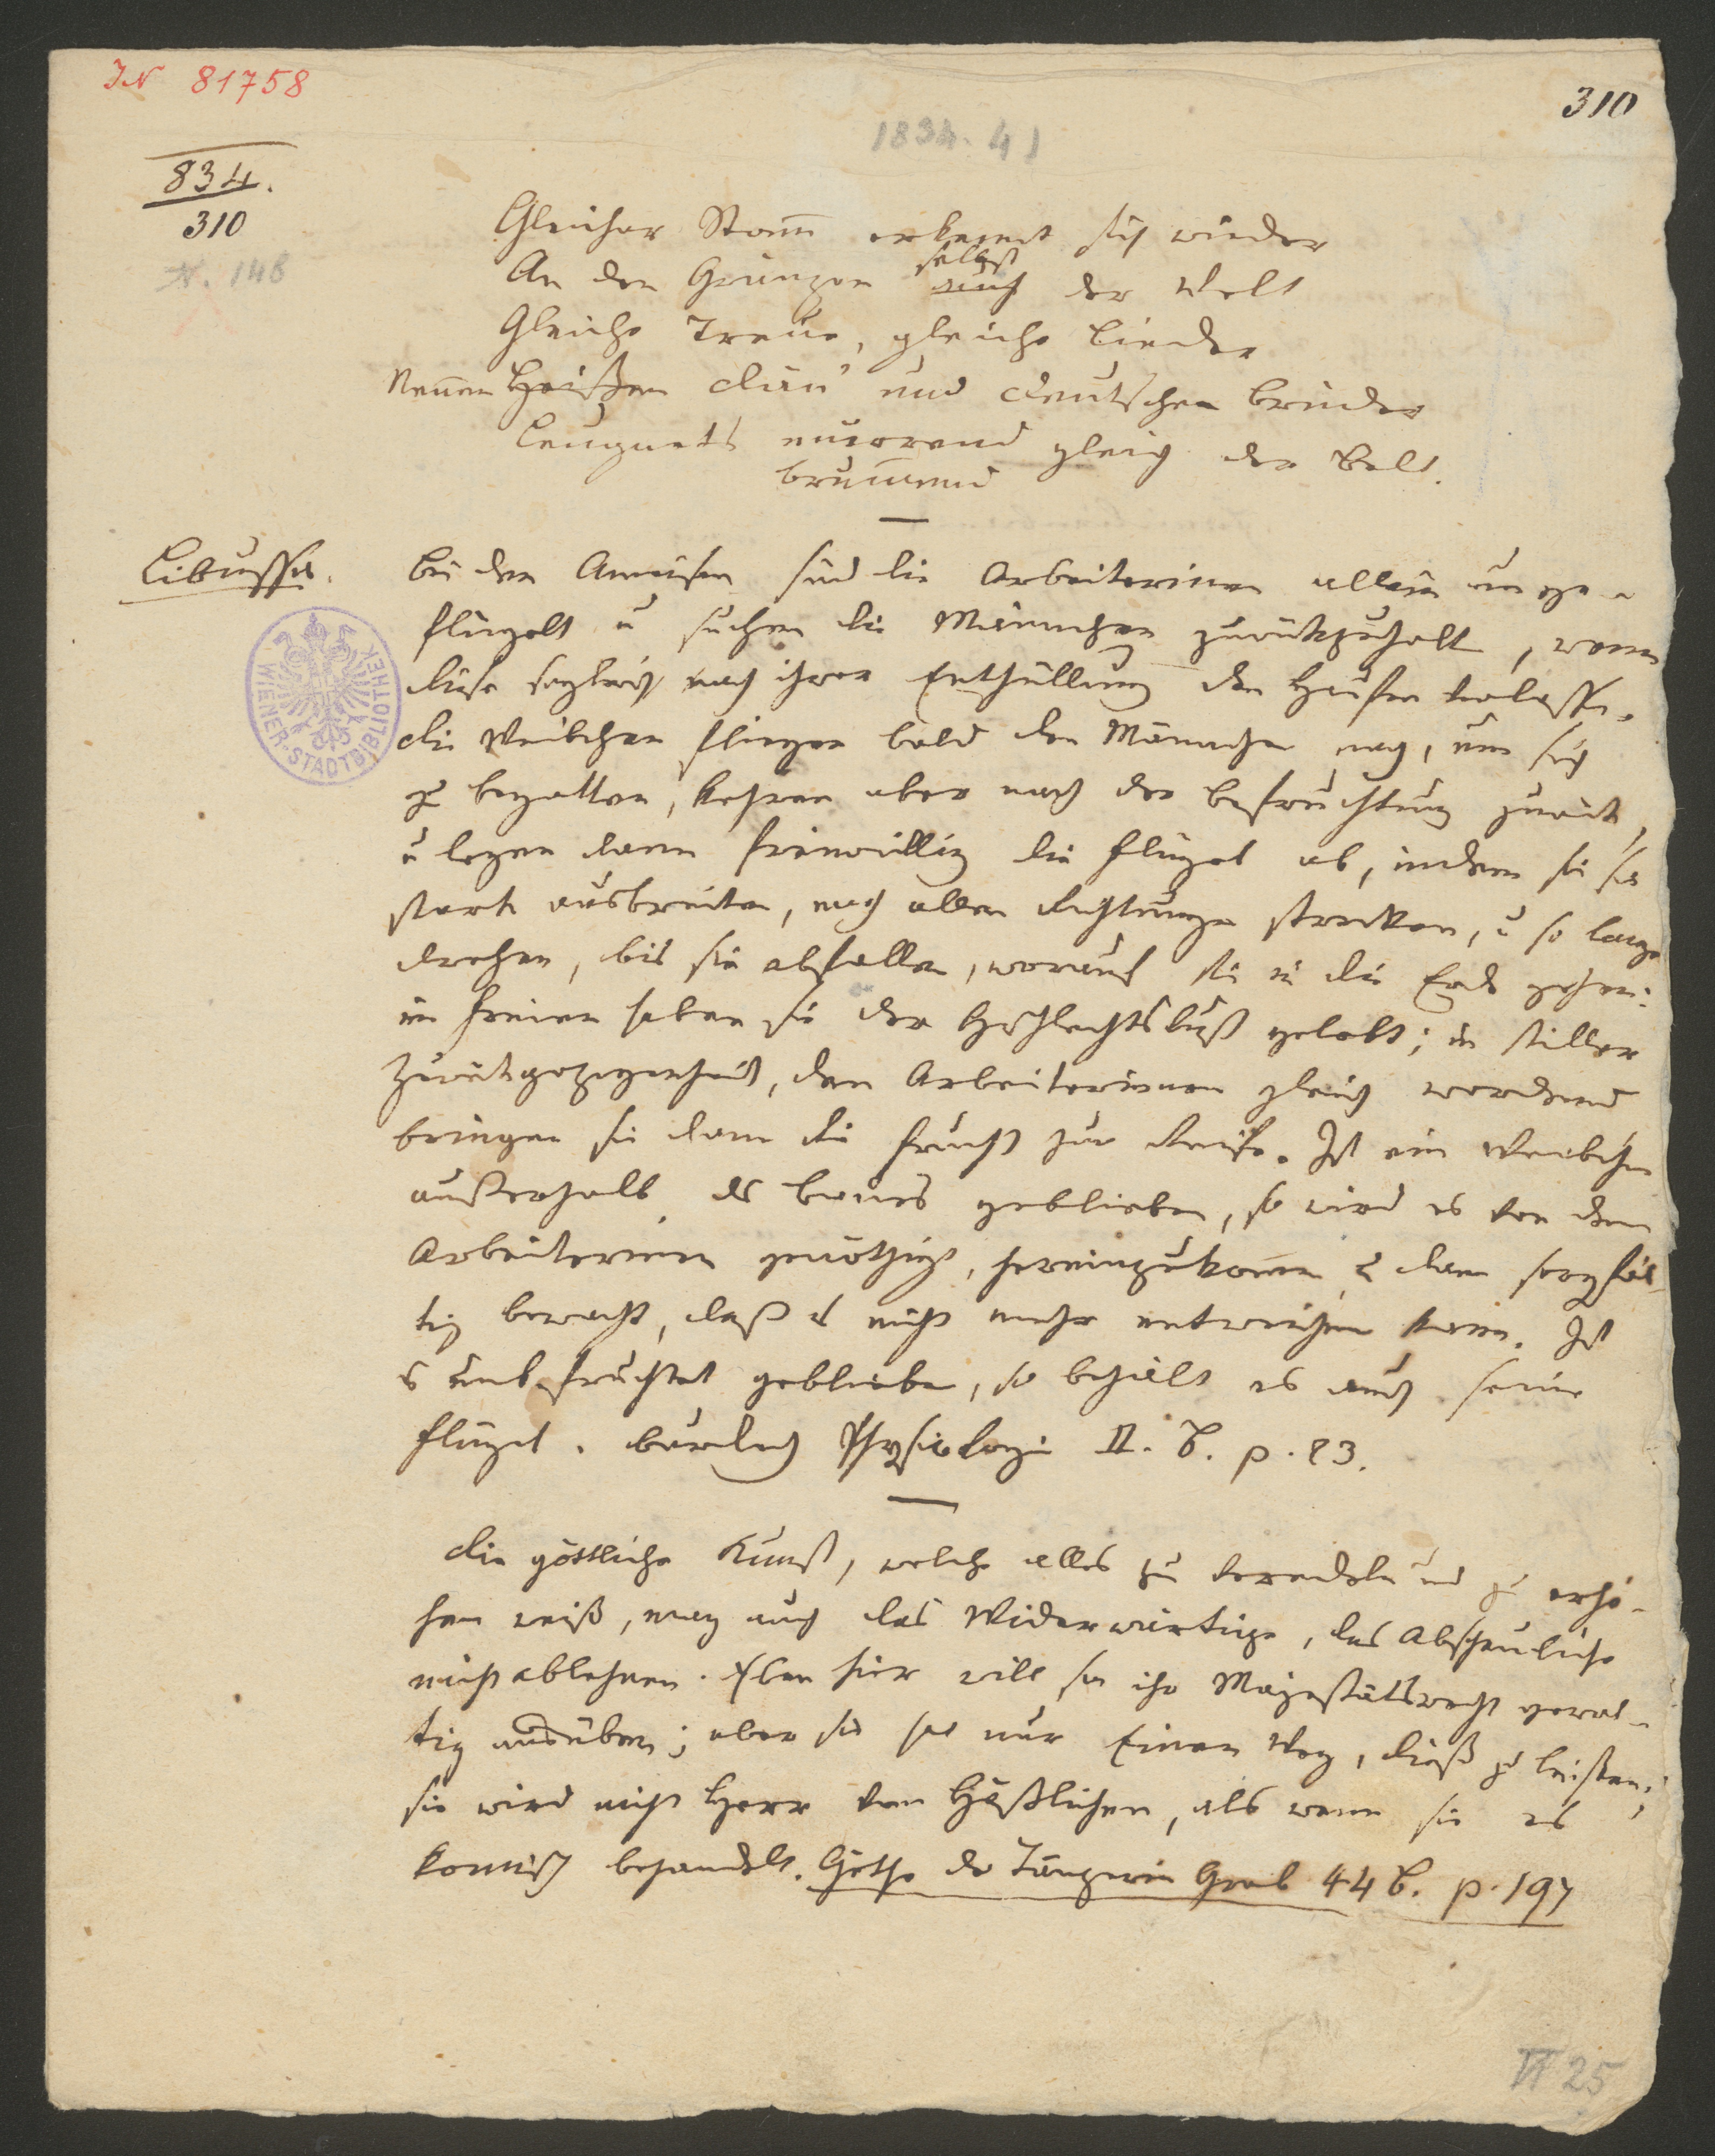 IN 81758
310
1834. 41
834.
310
N. 148
Gleicher Stam̄ erkennt sich wieder
selbst
An den Gränzen auch der Welt
Gleiche Treue, gleiche Lieder
Nennen Heißen Dän' und Deutschen Brüder
Leugnets murrend gleich der Belt.
brum̄end
Libussa.
Bei den Ameisen sind die Arbeiterinen allein unge-
flügelt u suchen die Männchen zurückzuhalt, wenn
diese sogleich nach ihrer Enthüllung den Haufen verlassen.
Die Weibchen fliegen bald den Männchen nach, um sich
zu begatten, kehren aber nach der Befruchtung zurück,
u legen dann freiwillig die Flügel ab, indem sie sie
stark ausbreiten, nach allen Richtungen strecken, u so lange
drehen, bis sie abfallen, worauf sie in die Erde gehen:
im Freien haben sie der Geschlechtslust gelebt; in stiller
Zurückgezogenheit, den Arbeiterinnen gleich werdend
bringen sie dann die Frucht zur Reife. Ist ein Weibchen
außerhalb des Baues geblieben, so wird es von den
Arbeiterinen genöthigt, hereinzukom̄en, u dann sorgfäl-
tig bewacht, daß es nicht mehr entweichen kann. Ist
es unbefruchtet geblieben, so behält es auch seine
Flügel. Burdach Physiologie II. B. p. 83.
Die göttliche Kunst, welche alles zu veredeln und zu erhö-
hen weiß, mag auch das Widerwärtige, das Abscheuliche
nicht ablehnen. Eben hier will sie ihr Majestätsrecht gewal-
tig ausüben; aber sie hat nur Einen Weg, dieß zu leisten;
sie wird nicht Herr vom Häßlichen, als wenn sie es
komisch behandelt. Göthe der Tänzerin Grab 44 B. p. 197
WIENER·STADTBIBLIOTHEK
VI 25